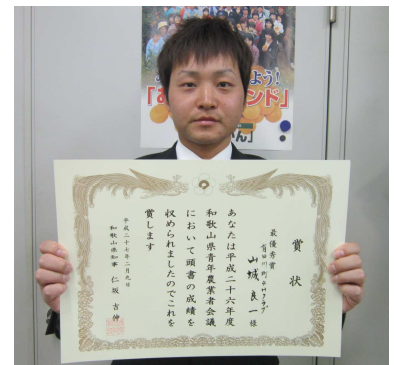 賞状
最優秀賞
有田川町4Hクラブ
山城良一様
あなたは平成二十六年度
和歌山県青年農業者会議
において頭書の成績を
収められましたのでこれを
賞します
平成二十七年二月九日
和歌山県知事 仁坂吉伸
よう!
ンド」
ん」